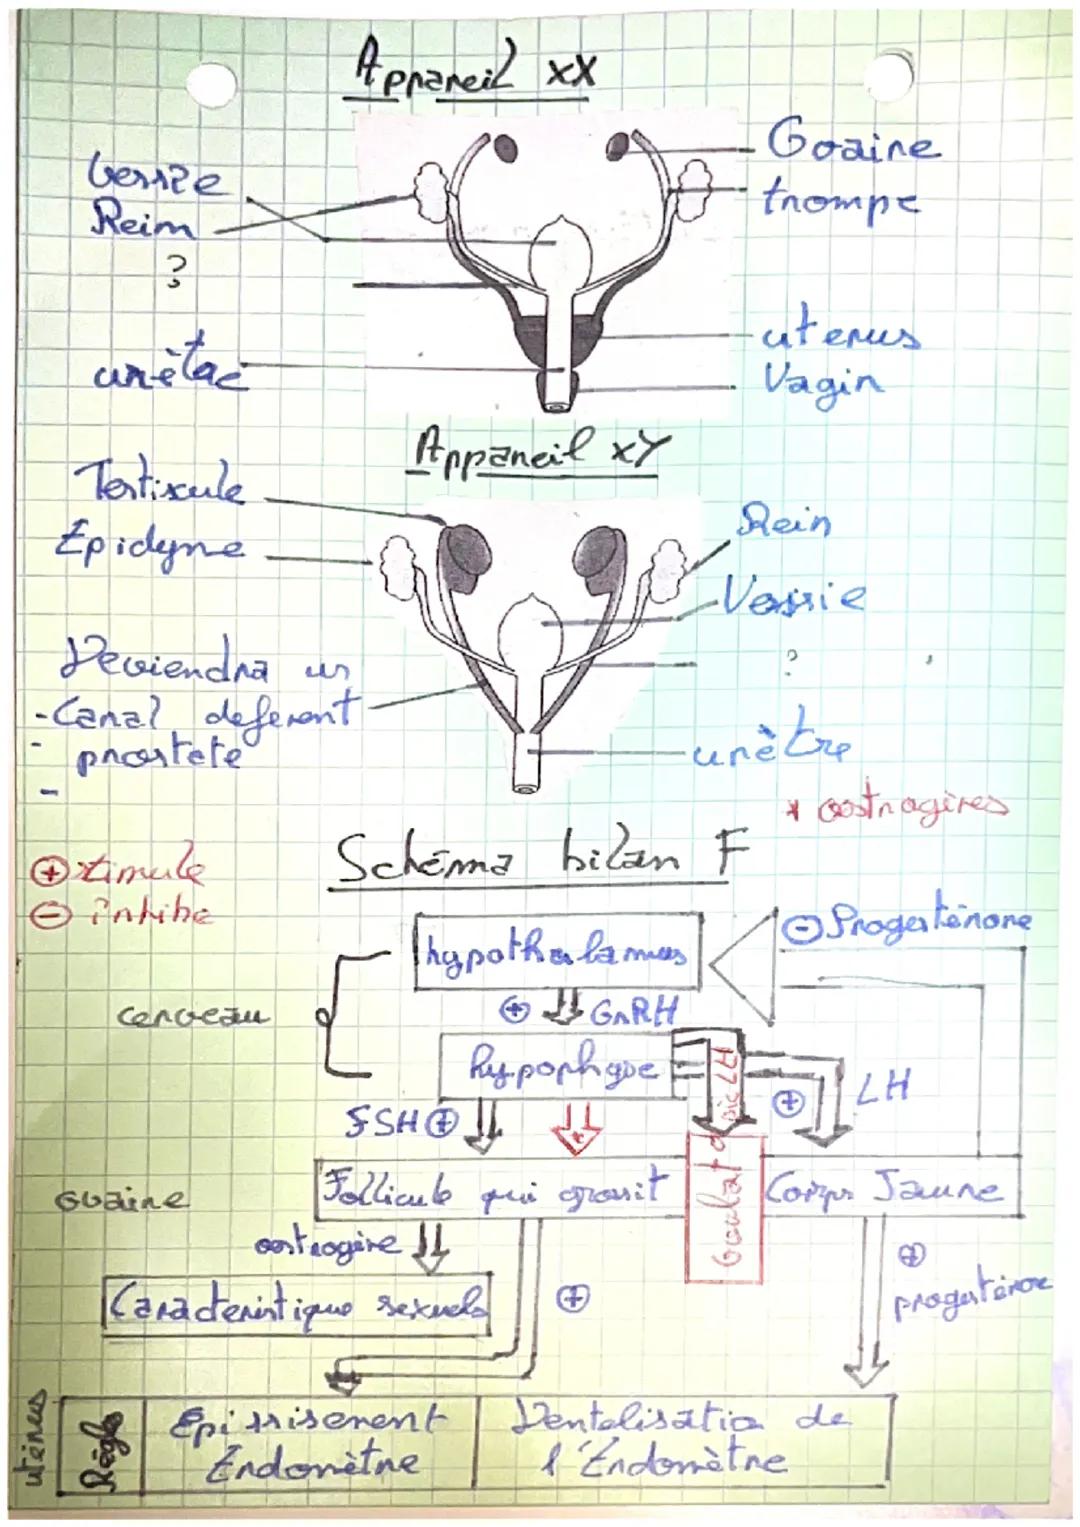 Appareil XX
Vessie
Reim
?
urètre
Ovaire
trompe
uterus
Vagin
Appareil XY
Testicule
Epidyme
Deviendra un
- Canal deferent
- prostete
-
Rein
Vessie
?
urètre
* oostrogères
⊕ stimule
⊖ inhibe
Schéma bilan F
hypothalamus
⊖ Progesténone
cerveau
⊕ GnRH
hypophyse
FSH ⊕
+
pic LH
⊕
LH
ovaire
Follicule qui grossit
Ovulat°
Corps Jaune
oestrogène
Caractenistique sexuels
⊕
⊕
progesterone
uterus
Règles
Epissisement
Endomètre
Dentelisatio de
l'Endomètre